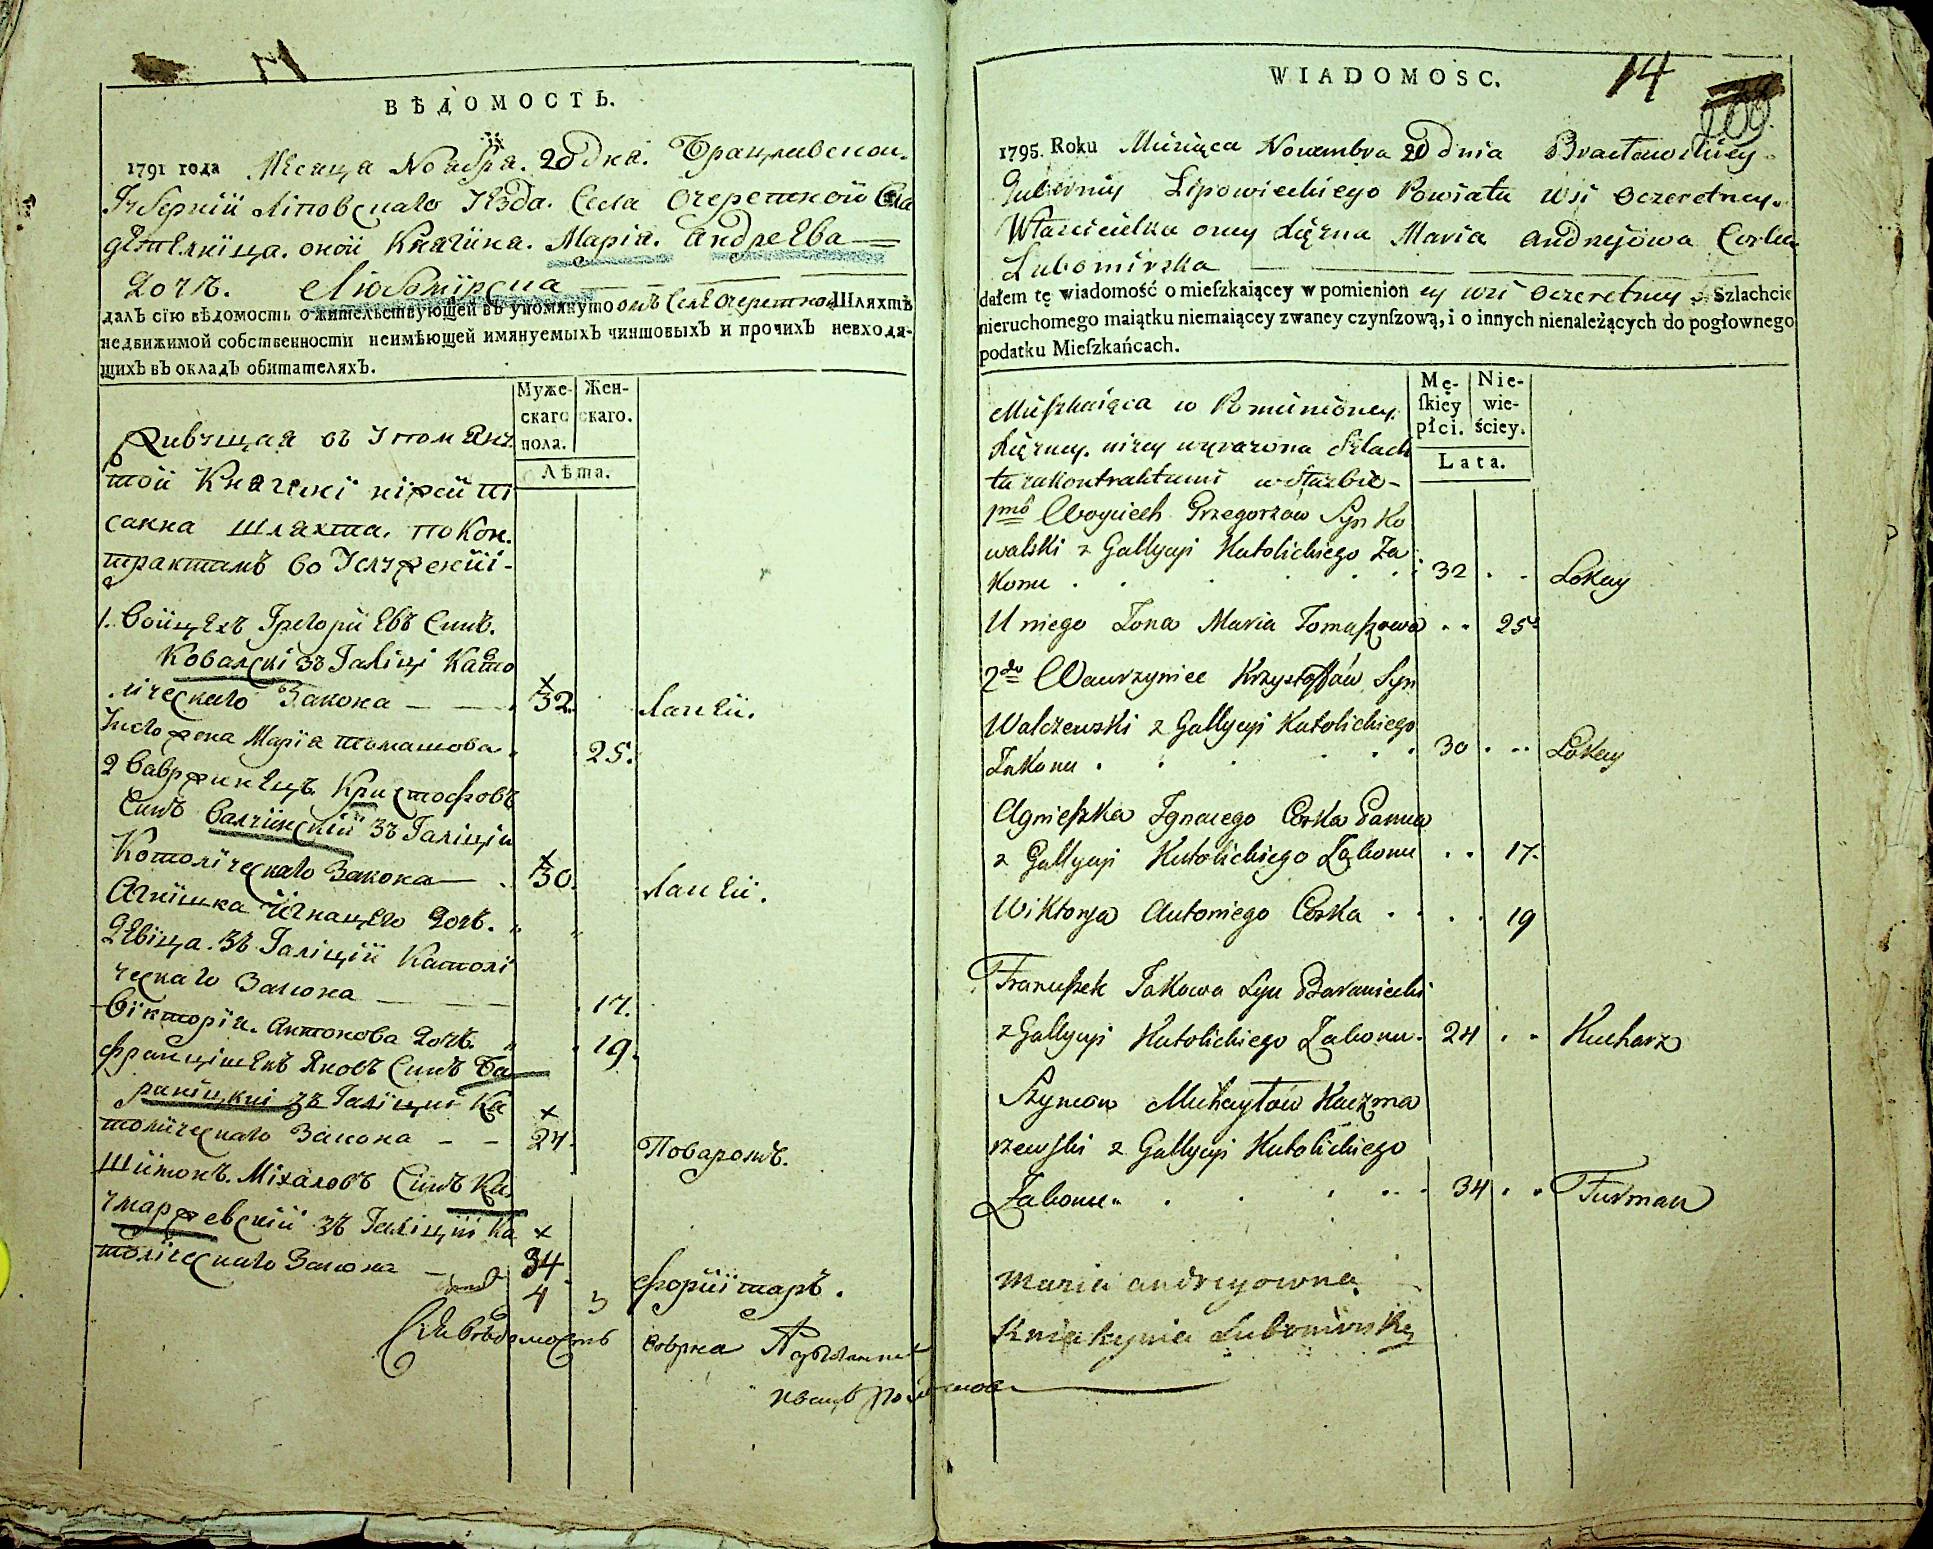 ВѢДОМОСТЬ.
1791 года Мѣсяца Ноября. 20 дня. Брацлавской.
Губерніи Ліповскаго Уѣзда. Села Очеретной Вла
дѣтелніца. оной Княгина. Маріа. Андреева
Дочь. Любомірска
далъ сїю вѣдомость о жительствующей въ упомянутомъ Селѣ Очеретной Шляхтѣ
недвижимой собственности неимѣющей имянуемыхъ чиншовыхъ и прочихъ невходя-
щихъ въ окладъ обитателяхъ.
Муже- Жен-
скаго скаго.
пола.
Лѣта.
Живущая въ Упомяну
той Княгині ніжей пі
санна шляхта. по кон.
трактамъ во Услуженіі-
1. Войцехъ Грегоріевъ Синъ.
Ковалскі зъ Галіці Като
ліческаго Закона 32. Лакеи.
Унего жена Маріа томашова 25.
2 Вавржинецъ Кристофовъ
Синъ Валчінскій зъ Галіціи
Котоліческаго Закона 30. Лакеи.
Агнішка Ігнацего Дочь.
Девіца. зъ Галіціи Католі
ческаго Закона 17.
Вікторіа. Антонова Дочь. 19.
Францішекъ Яковъ Синъ Ба
раніцкиі зъ Галіциі Ка
толіческаго Закона 24. Поваромъ.
Шімонъ. Міхаловъ Синъ Ка
чмаржевскій зъ Галіціи Ка
толіческаго Закона 34 форіітаръ.
4 3
Сію Вѣдомость
WIADOMOSC. 14
1795. Roku Miesiąca Nowembra 20 dnia Bracławskiey
Gubernij Lipowieckiego Powiatu wsi Oczeretney.
Właścicielka oney Xiężna Maria Andrejowa Corka
Lubomirska
dałem tę wiadomość o mieſzkaiącey w pomienioney wsi Oczeretney Szlachcie
nieruchomego maiątku niemaiącey zwaney czynſzową, i o innych nienależących do pogłownego
podatku Mieſzkańcach.
Mę- Nie-
ſkiey wie-
płci. ściey.
Lata.
Mieſzkaiąca w Pomienioney
Xiężney. niżey wyrażona Szlach
ta zakontraktami w służbie-
1mo Woyciech Grzegorzow Syn Ko
walski z Gallycyi Katolickiego Za
konu 32 Lokay
U niego Żona Maria Tomaſzowa 25
2do Wawrzyniec Krzysztoffów Syn
Walczewski z Gallycyi Katolickiego
Zakonu 30 Lokay
Agnieſzka Ignacego Corka Panna
z Gallycyi Katolickiego Zakonu 17.
Wiktorya Antoniego Corka 19
Franciſzek Jakowa Syn Baraniecki
z Gallycyi Katolickiego Zakonu 24 Kucharz
Szymon Michayłów Kaczma
rzewſki z Gallycyi Katolickiego
Zakonu 34 Furman
Maria Andreyowna
Kniahynia Lubomirska